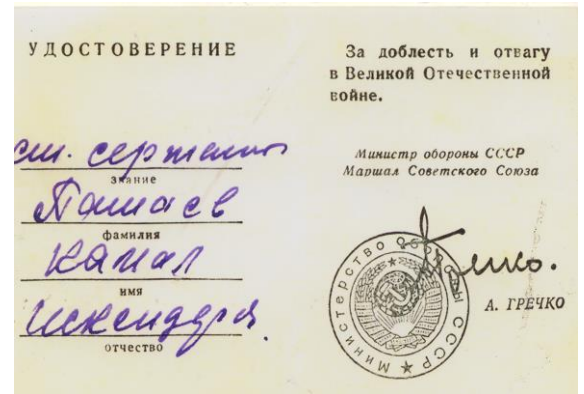 УДОСТОВЕРЕНИЕ
ст. сержант
звание
Пашаев
фамилия
Камал
имя
отчество
За доблесть и отвагу
в Великой Отечественной
войне.
Министр обороны СССР
Маршал Советского Союза
А. ГРЕЧКО
Министерство Обороны СССР